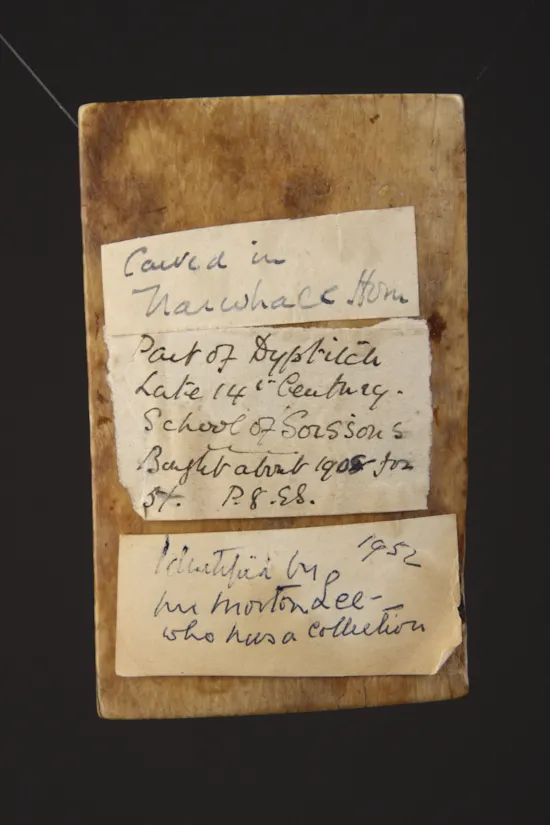 Carved in
Narwhale Horn
Part of Dyptitch
Late 14th Century.
School of Soissons
Bought about 1905 for
5/. P.8.
Identified by 1952
Mr Morton Lee -
who has a collection